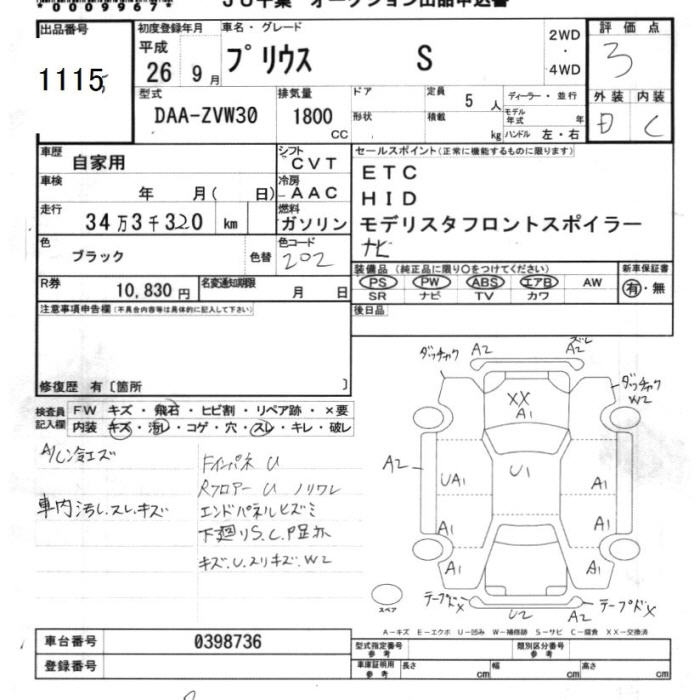 *0009967*
JU千葉 オークション出品申込書
出品番号
1115
初度登録年月
平成
26 9月
車名・グレード
プリウス S
2WD
・
4WD
評価点
3
外装 内装
D C
型式
DAA-ZVW30
排気量
1800
CC
ドア
形状
定員 5 人
積載 kg
ディーラー・並行
モデル年式 年
ハンドル 左・右
車歴
自家用
シフト
CVT
車検
年 月( 日)
冷房
AAC
走行
34万3千320 km
燃料
ガソリン
色
ブラック
色替
色コード
202
R券
10,830円
名変通知期限
月 日
セールスポイント(正常に機能するものに限ります)
ETC
HID
モデリスタフロントスポイラー
ナビ
装備品(純正品に限り○をつけてください)
PS PW ABS エアB AW
SR ナビ TV カワ
新車保証書
有・無
後日品
注意事項申告欄(不具合内容等は具体的に記入して下さい)
修復歴 有〔箇所 〕
検査員
記入欄
FW キズ・飛石・ヒビ割・リペア跡・×要
内装 キズ・汚レ・コゲ・穴・スレ・キレ・破レ
A/C冷エズ
車内汚し.スレ.キズ
Fインパネ U
Rフロアー U ノリワレ
エンドパネルヒズミ
下廻りS.C.P歪ホ
キズ.U.スリキズ.W2
ダッチャク A2
A2 ズレ
ダッチャク
W2
XX
A1
A2
UA1
U1
A1
A1
A1
A1
A1
テープドメX
U2
A2
テープドメX
スペア
A-キズ E-エクボ U-凹み W-補修跡 S-サビ C-腐食 XX-交換済
車台番号
0398736
登録番号
型式指定番号
参考
類別区分番号
参考
車庫証明用
参考
長さ cm
幅 cm
高さ cm